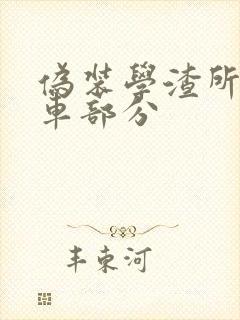 偽裝學渣所
車部分
丰東河